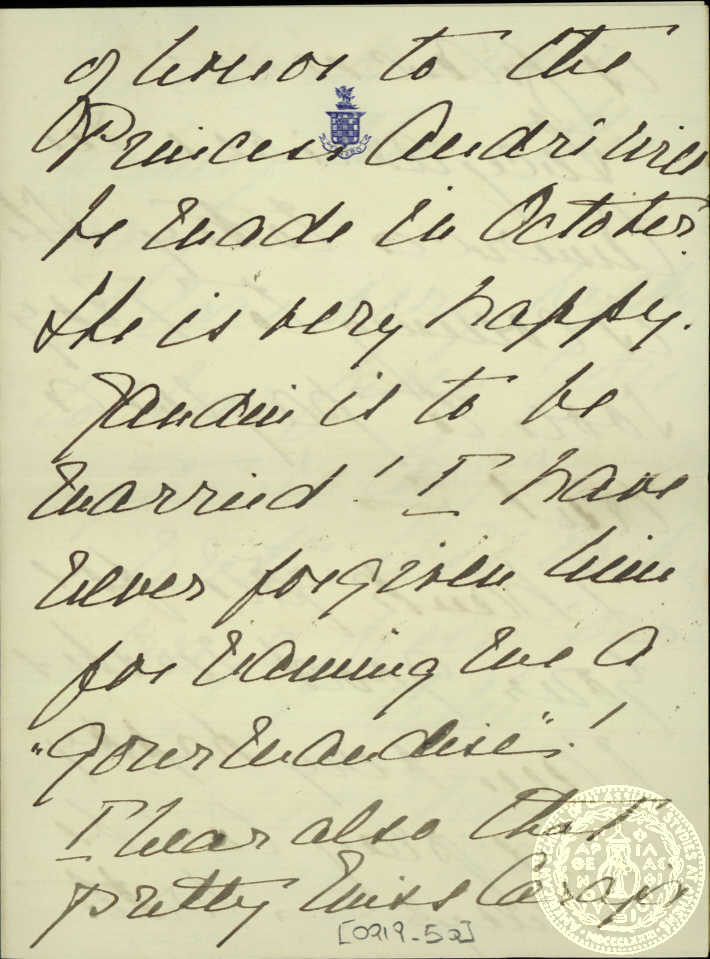 of honor to the
Princess Andre will
be made in October.
She is very happy.
is to be
married! I have
never forgiven him
for naming me a
"Gourmandise"!
I hear also that
pretty Miss
[0219-52]